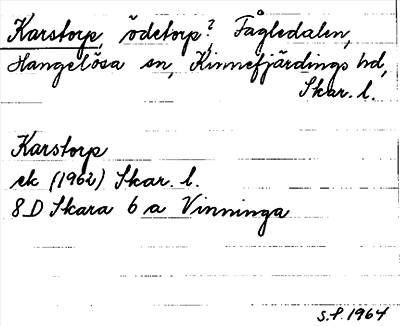 Karstorp, ödetorp?, Fågledalen,
Hangelösa sn, Kinnefjärdings hd,
Skar. l.
Karstorp
ek (1962) Skar. l.
8 D Skara 6 a Vinninga
S.F. 1964